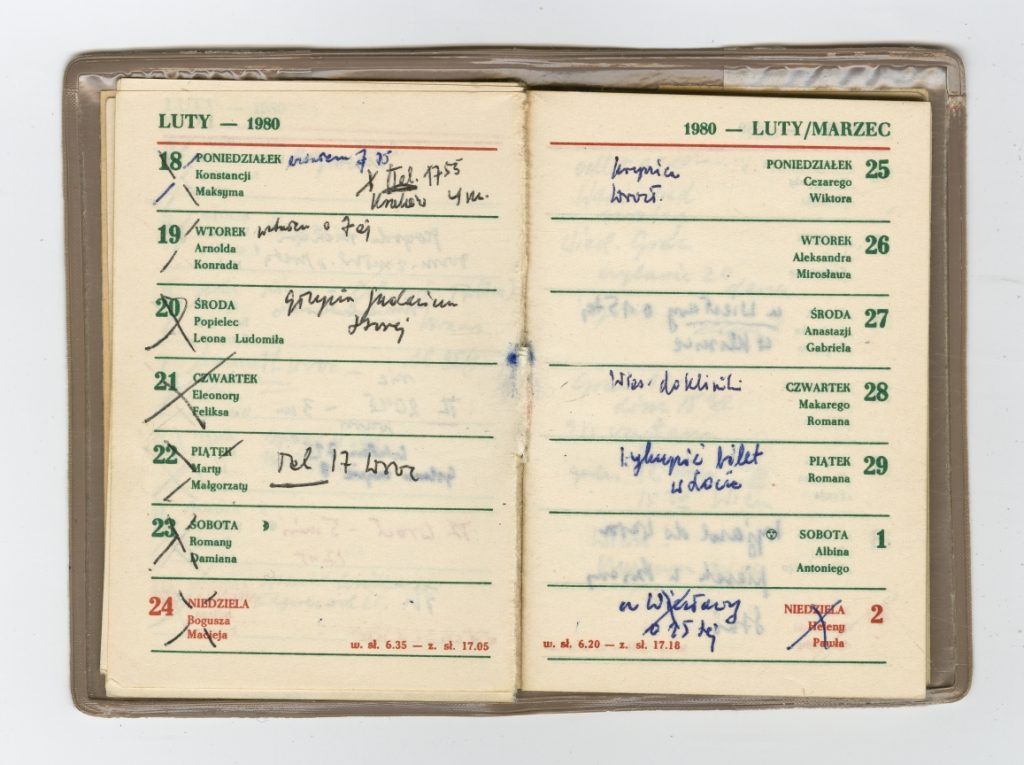 LUTY — 1980
18 PONIEDZIAŁEK
Konstancji
Maksyma
X Tel. 17 55
Kraków 4 m.
19 WTOREK o 7ej
Arnolda
Konrada
20 ŚRODA
Popielec
Leona Ludomiła
21 CZWARTEK
Eleonory
Feliksa
22 PIĄTEK
Marty
Małgorzaty
Tel 17 Wroc
23 SOBOTA
Romany
Damiana
24 NIEDZIELA
Bogusza
Macieja
w. sł. 6.35 — z. sł. 17.05
1980 — LUTY/MARZEC
PONIEDZIAŁEK 25
Cezarego
Wiktora
WTOREK 26
Aleksandra
Mirosława
ŚRODA 27
Anastazji
Gabriela
CZWARTEK 28
Makarego
Romana
wykupić bilet
w Locie
PIĄTEK 29
Romana
SOBOTA 1
Albina
Antoniego
u Wiesławy
o 15 tej
NIEDZIELA 2
Heleny
Pawła
w. sł. 6.20 — z. sł. 17.18